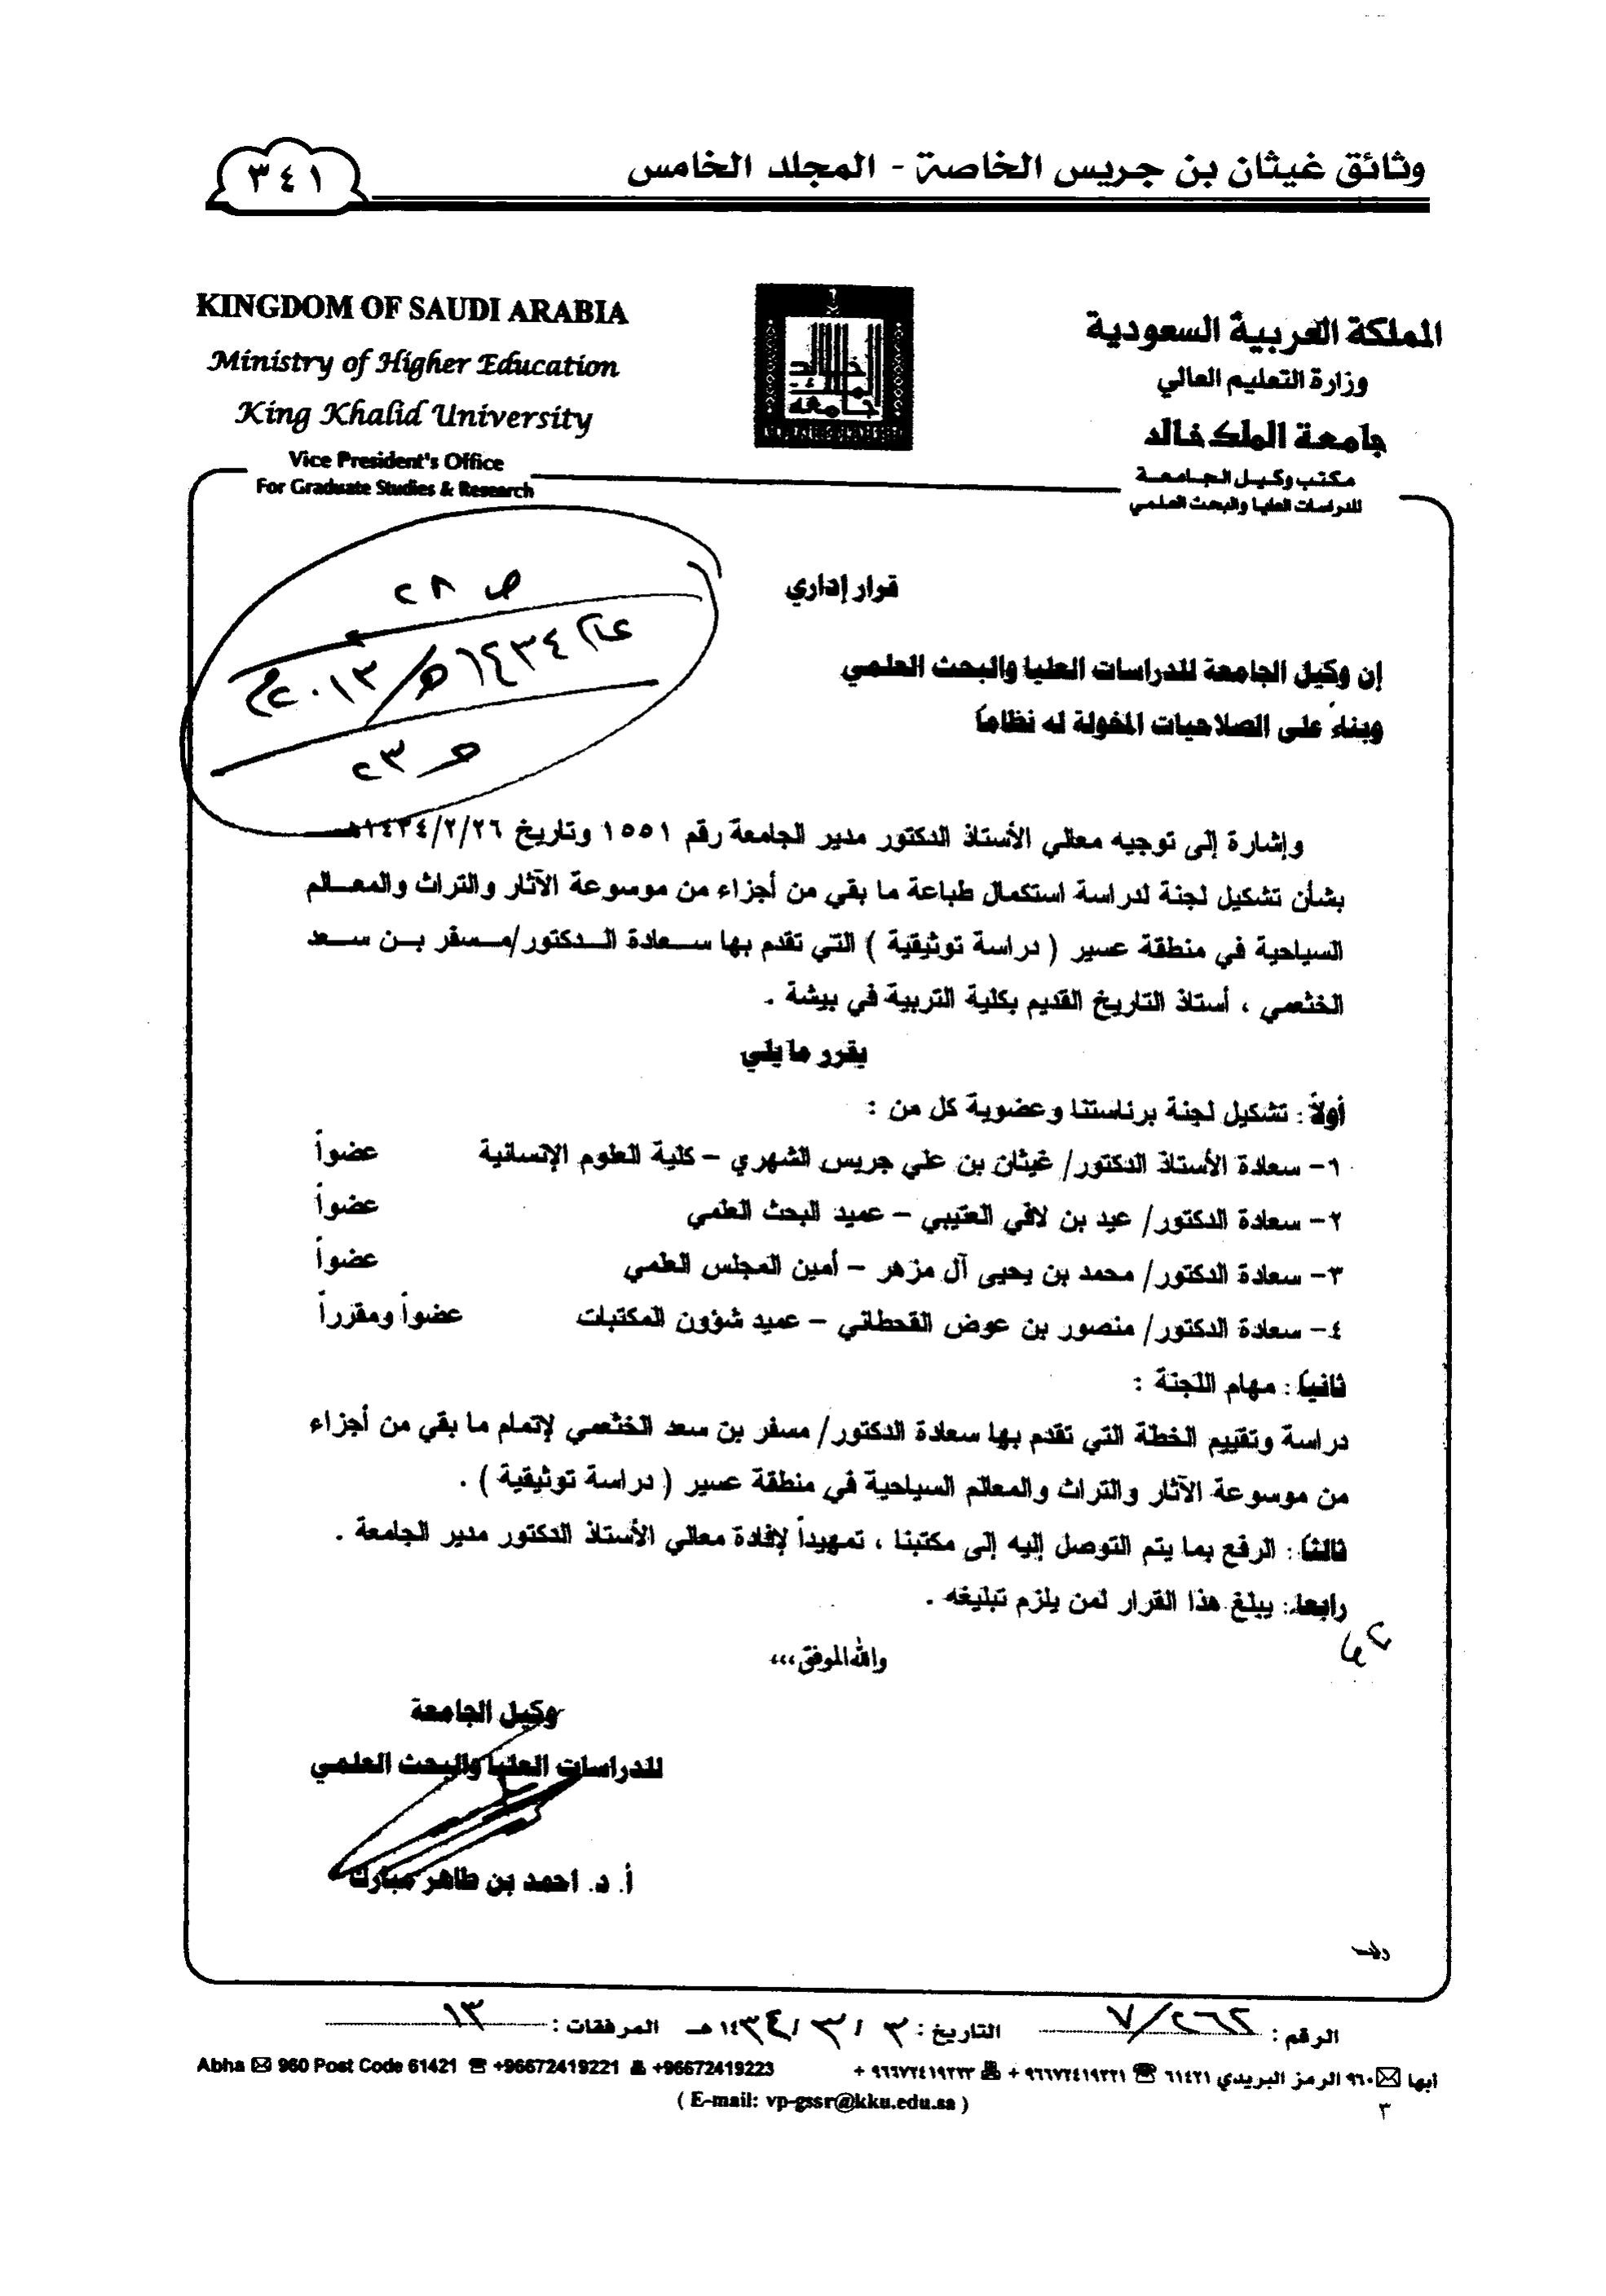 وثائق غيثان بن جريس الخاصة - المجلد الخامس
٣٤١
KINGDOM OF SAUDI ARABIA
Ministry of Higher Education
King Khalid University
Vice President's Office
For Graduate Studies & Research
المملكة العربية السعودية
وزارة التعليم العالي
جامعة الملك خالد
مكتب وكيل الجامعة
للدراسات العليا والبحث العلمي
ص ٢٨
عام ١٤٣٤هـ/٢٠١٣م
قرار إداري
إن وكيل الجامعة للدراسات العليا والبحث العلمي
وبناءً على الصلاحيات المخولة له نظاماً
وإشارة إلى توجيه معالي الأستاذ الدكتور مدير الجامعة رقم ١٥٥١ وتاريخ ١٤٣٤/٢/٢٦هـ
بشأن تشكيل لجنة لدراسة استكمال طباعة ما بقي من أجزاء من موسوعة الآثار والتراث والمعالم
السياحية في منطقة عسير ( دراسة توثيقية ) التي تقدم بها سعادة الدكتور/مسفر بن سعد
الخثعمي ، أستاذ التاريخ القديم بكلية التربية في بيشة .
يقرر ما يلي
أولاً : تشكيل لجنة برئاستنا وعضوية كل من :
١- سعادة الأستاذ الدكتور/ غيثان بن علي جريس الشهري – كلية العلوم الإنسانية عضواً
٢- سعادة الدكتور/ عيد بن لافي العتيبي – عميد البحث العلمي عضواً
٣- سعادة الدكتور/ محمد بن يحيى آل مزهر – أمين المجلس العلمي عضواً
٤- سعادة الدكتور/ منصور بن عوض القحطاني – عميد شؤون المكتبات عضواً ومقرراً
ثانياً : مهام اللجنة :
دراسة وتقييم الخطة التي تقدم بها سعادة الدكتور/ مسفر بن سعد الخثعمي لإتمام ما بقي من أجزاء
من موسوعة الآثار والتراث والمعالم السياحية في منطقة عسير ( دراسة توثيقية ) .
ثالثاً : الرفع بما يتم التوصل إليه إلى مكتبنا ، تمهيداً لإفادة معالي الأستاذ الدكتور مدير الجامعة .
رابعاً : يبلغ هذا القرار لمن يلزم تبليغه .
والله الموفق،،،
وكيل الجامعة
للدراسات العليا والبحث العلمي
أ. د. احمد بن طاهر مبارك
الرقم : ٧/٢٦٢ التاريخ : ٣ / ٣ / ١٤٣٤ هـ المرفقات : ١٣
Abha ✉ 960 Post Code 61421 ☎ +96672419221 +96672419223
ابها ✉ ٩٦٠ الرمز البريدي ٦١٤٢١ ☎ ٩٦٦٧٢٤١٩٢٢١ + ٩٦٦٧٢٤١٩٢٢٣ +
( E-mail: vp-gssr@kku.edu.sa )
٣